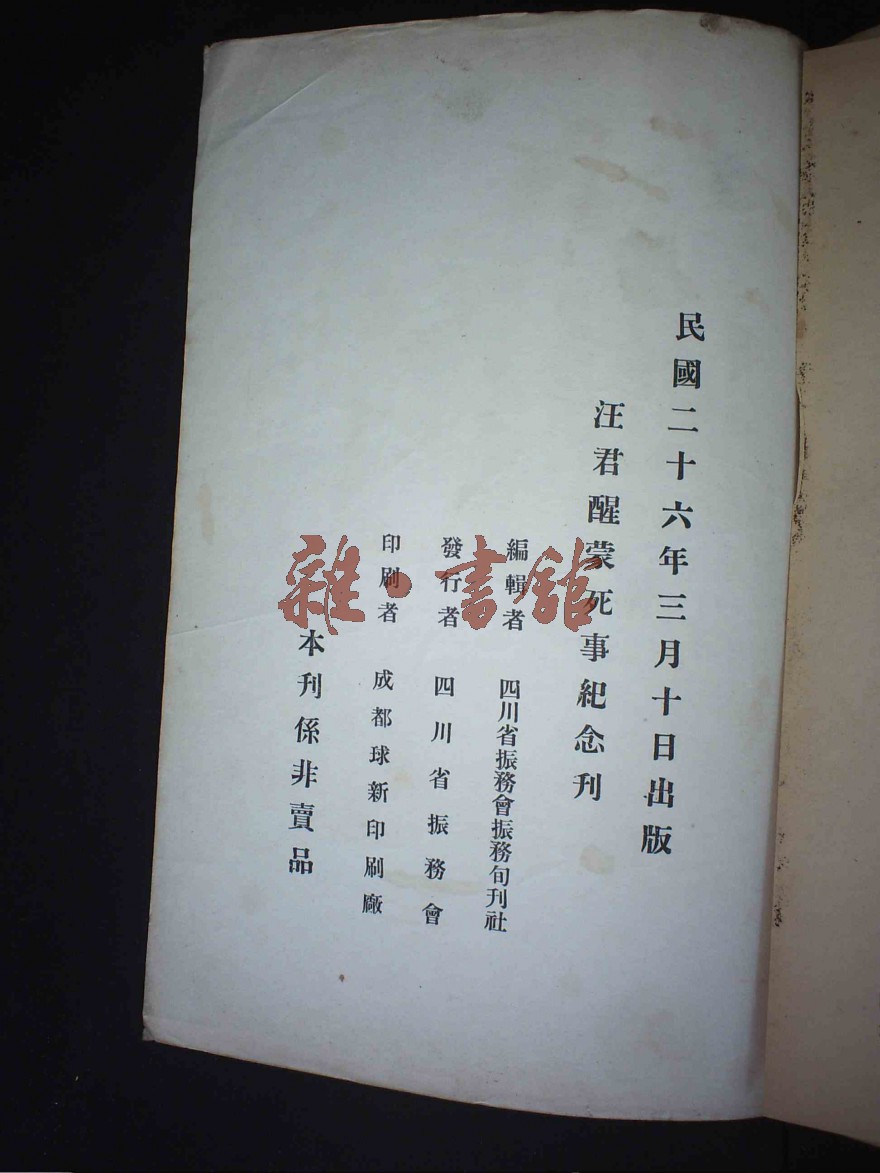 民國二十六年三月十日出版
汪君醒蒙死事紀念刊
編輯者 四川省振務會振務旬刊社
發行者 四川省振務會
印刷者 成都球新印刷廠
本刊係非賣品
雜·書館